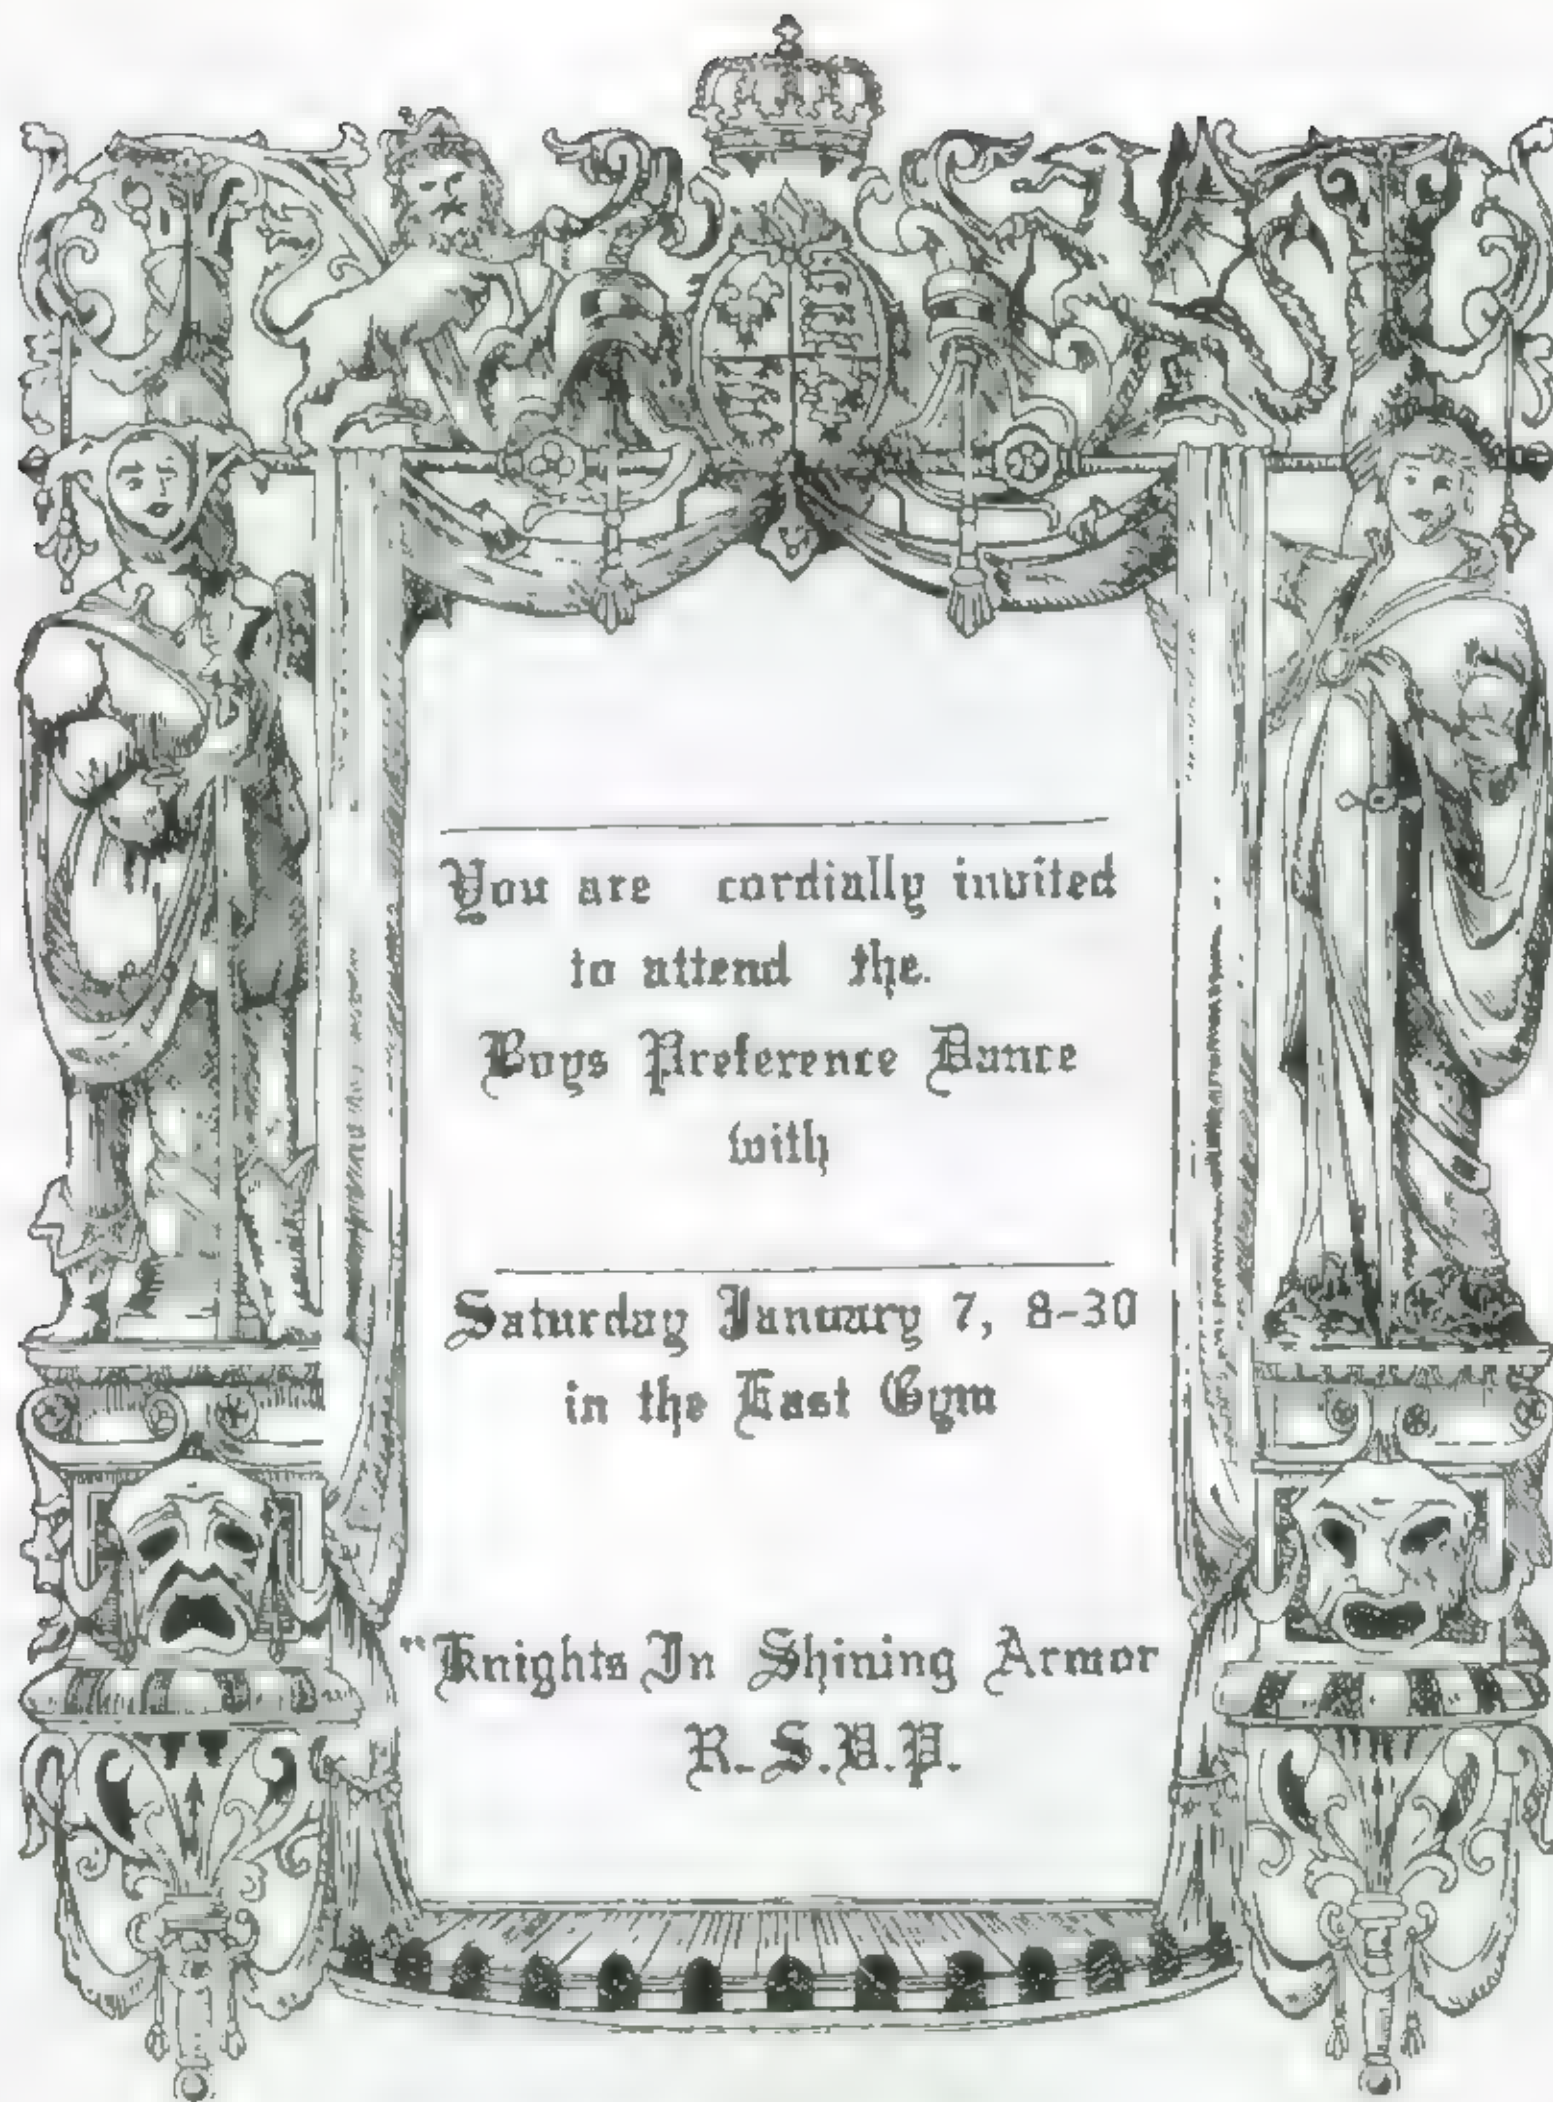 You are cordially invited
to attend the.
Boys Preference Dance
with
Saturday January 7, 8-30
in the East Gym
"Knights In Shining Armor
R.S.V.P.